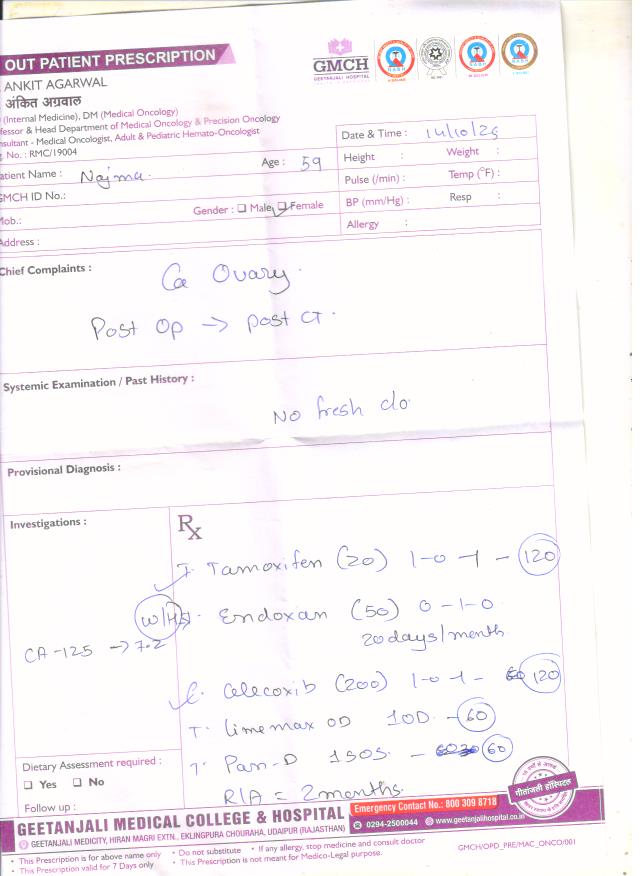 OUT PATIENT PRESCRIPTION
GMCH
GEETANJALI HOSPITAL
ANKIT AGARWAL
अंकित अग्रवाल
(Internal Medicine), DM (Medical Oncology)
fessor & Head Department of Medical Oncology & Precision Oncology
nsultant - Medical Oncologist, Adult & Pediatric Hemato-Oncologist
. No.: RMC/19004
Date & Time : 14/10/25
atient Name : Najma. Age : 59
Height : Weight :
GMCH ID No.:
Pulse (/min) : Temp (°F) :
Mob.: Gender : Male Female
BP (mm/Hg) : Resp :
Address :
Allergy :
Chief Complaints :
Ca Ovary.
Post Op → post CT.
Systemic Examination / Past History :
No fresh c/o
Provisional Diagnosis :
Investigations :
Rx
T. Tamoxifen (20) 1-0-1 - 120
W/H T. Endoxan (50) 0-1-0
20 days/month
CA-125 → 7.2
C. Celecoxib (200) 1-0-1 - 120
T. limemax OD 10D. - 60
T. Pan-D 1SOS. - 60
R/A = 2 months.
Dietary Assessment required :
Yes No
Follow up :
GEETANJALI MEDICAL COLLEGE & HOSPITAL
Emergency Contact No.: 800 309 8718
GEETANJALI MEDICITY, HIRAN MAGRI EXTN., EKLINGPURA CHOURAHA, UDAIPUR (RAJASTHAN)
0294-2500044 www.geetanjalihospital.co.in
गीतांजली हॉस्पिटल
• This Prescription is for above name only • Do not substitute • If any allergy, stop medicine and consult doctor
• This Prescription valid for 7 Days only • This Prescription is not meant for Medico-Legal purpose.
GMCH/OPD_PRE/MAC_ONCO/001